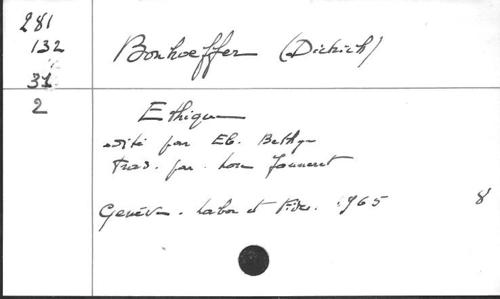 281
132
31
2
Bonhoeffer (Dietrich)
Ethique
édité par Eb. Bethge
Trad. par. Lore Jeanneret
Genève. Labor et Fides. 1965
8